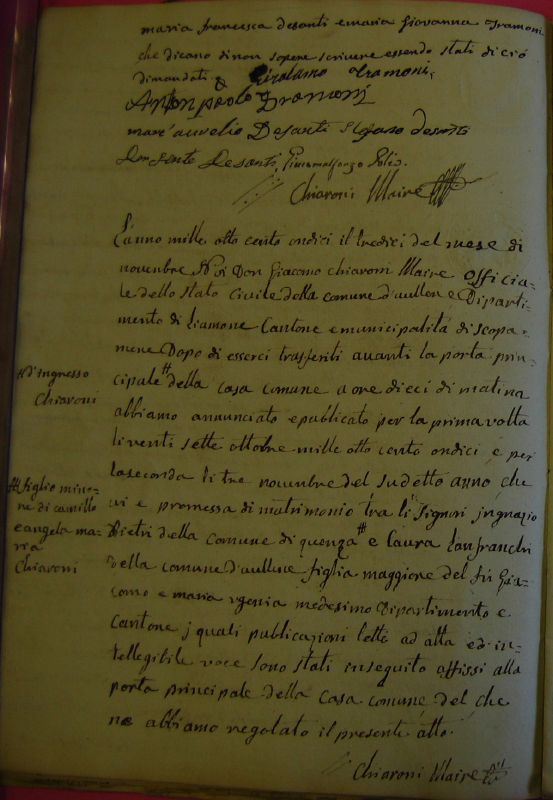 maria francesca desanti e maria Giovanna Tramoni
che dicano di non sapere scrivere essendo stati di ciò
dimandati. Girolamo Tramoni,
Anton paolo Tramoni
marc' aurelio Desanti Stefano desanti
Don Sente Desanti,
Chiaroni Maire
L'anno mille otto cento ondici il tredici del mese di
novembre Noi Don Giacomo Chiaroni Maire officia-
le dello stato Civile della comune d'aullene Diparti-
mento di Liamone Cantone e municipalità di scopa-
mene Dopo di esserci trasferiti avanti la porta prin-
cipale # della casa comune a ore dieci di matina
# d'ingresso
Chiaroni
abbiamo annunciato e publicato per la prima volta
li venti sette ottobre mille otto cento ondici e per
la seconda li tre novembre del sudetto anno che
vi e promessa di matrimonio tra li Signori jngnazio
Pietri della comune di quenza # e Laura Lanfranchi
# figlio mino-
re di camillo
e angela ma-
ria
Chiaroni
della comune d'aullene figlia maggiore del fù Gia-
como e maria ugenia medesimo Dipartimento e
Cantone j quali publicazioni lette ad alta ed in-
tellegibile voce sono stati inseguito affissi alla
porta principale della Casa comune del che
ne abbiamo regolato il presente atto.
Chiaroni Maire